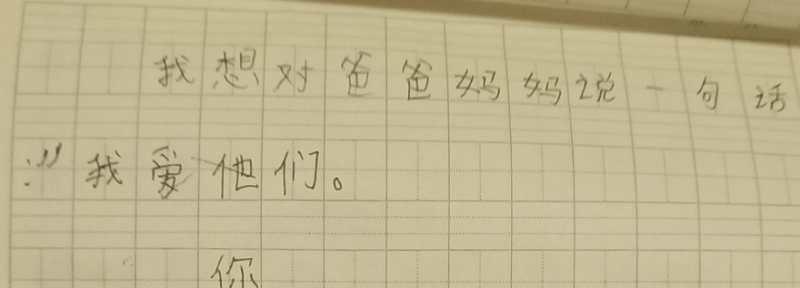 我想对爸爸妈妈说一句话
:"我爱他们。
你